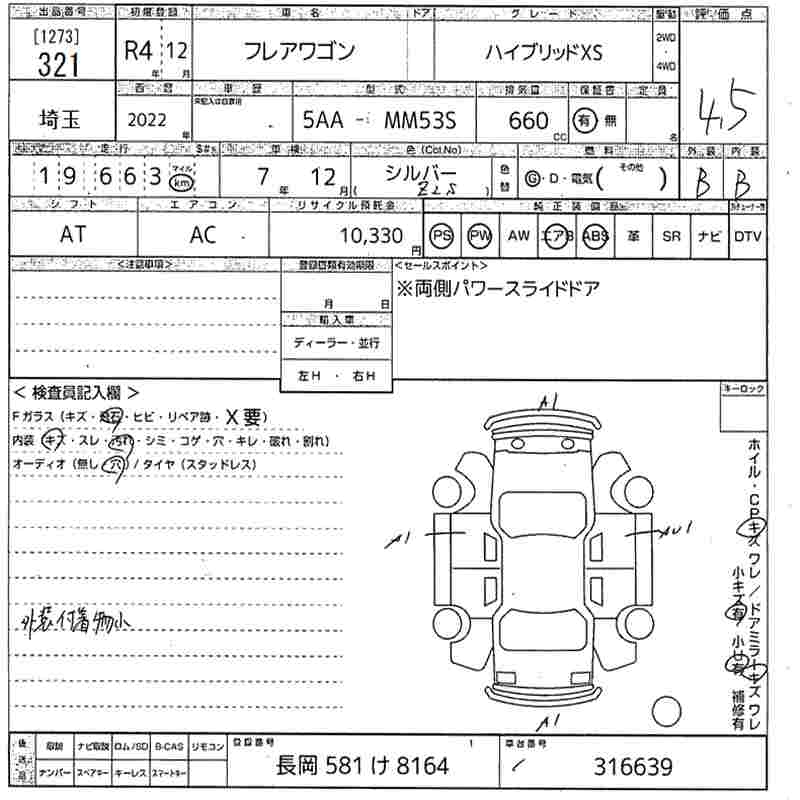 出品番号 初度登録 車名 ドア グレード 駆動 評価点
[1273]
321 R4年 12月 フレアワゴン ハイブリッドXS 2WD・4WD 4.5
埼玉 西暦 車歴 型式 排気量 保証書 定員
2022年 5AA - MM53S 660CC 有 無 名
走行 車検 色(Col.No) 燃料 外装 内装
19663 マイル km 7年 12月 シルバー 色替 G・D・電気( その他 ) B B
( ZLS )
シフト エアコン リサイクル預託金 純正装備品
AT AC 10,330円 PS PW AW エアB ABS 革 SR ナビ DTV
<注意事項> 登録書類有効期限 <セールスポイント>
月 日 ※両側パワースライドドア
輸入車
ディーラー・並行
左H ・ 右H
< 検査員記入欄 > キーロック
Fガラス (キズ・飛石・ヒビ・リペア跡・X要)
内装 (キズ・スレ・汚れ・シミ・コゲ・穴・キレ・破れ・割れ)
オーディオ (無し・穴) / タイヤ (スタッドレス)
A1
A1 AU1
A1
外装付着物小
ホイル・CPキズ ワレ / ドアミラーキズ ワレ
小キズ有 小U有 補修有
後送品 取説 ナビ取説 ロム/SD B-CAS リモコン 登録番号 1 車台番号
ナンバー スペアキー キーレス スマートキー 長岡 581 け 8164 316639